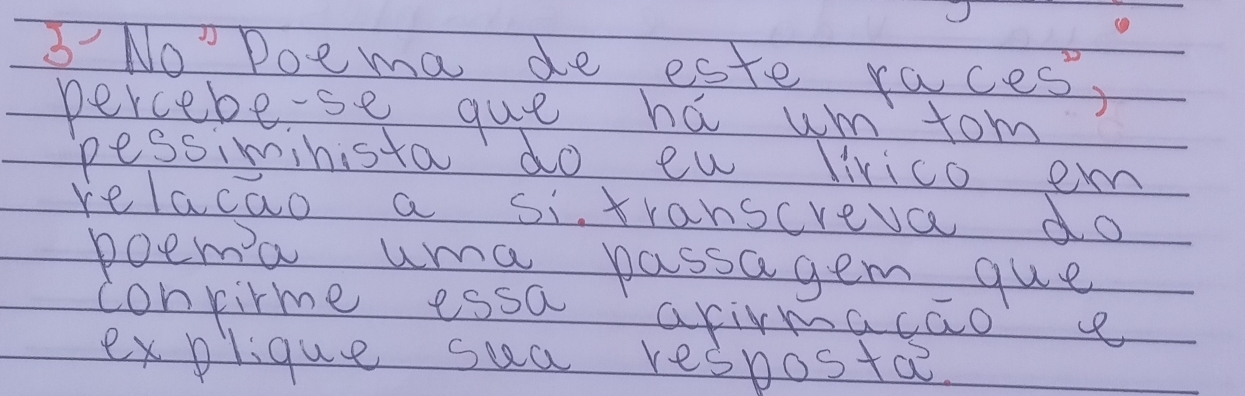 3- No "Poema de este faces",
percebe-se que há um tom
pessiminista do eu lírico em
relação a si. transcreva do
poema uma passagem que
confirme essa afirmação e
explique sua resposta.